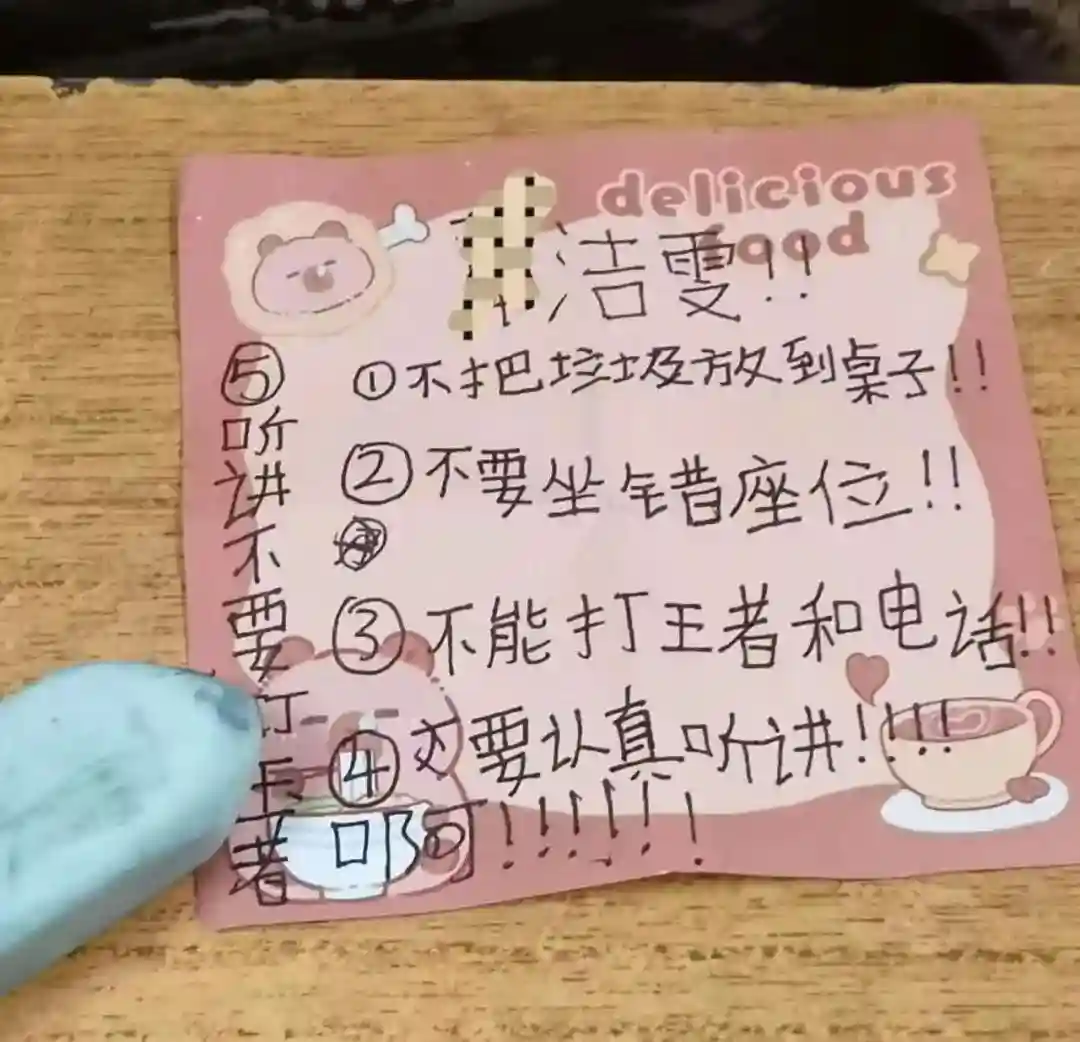 delicious
food
洁雯!!
①不把垃圾放到桌子!!
②不要坐错座位!!
③不能打王者和电话!!
④要认真听讲!!!!
⑤听讲不要
!!!!!!